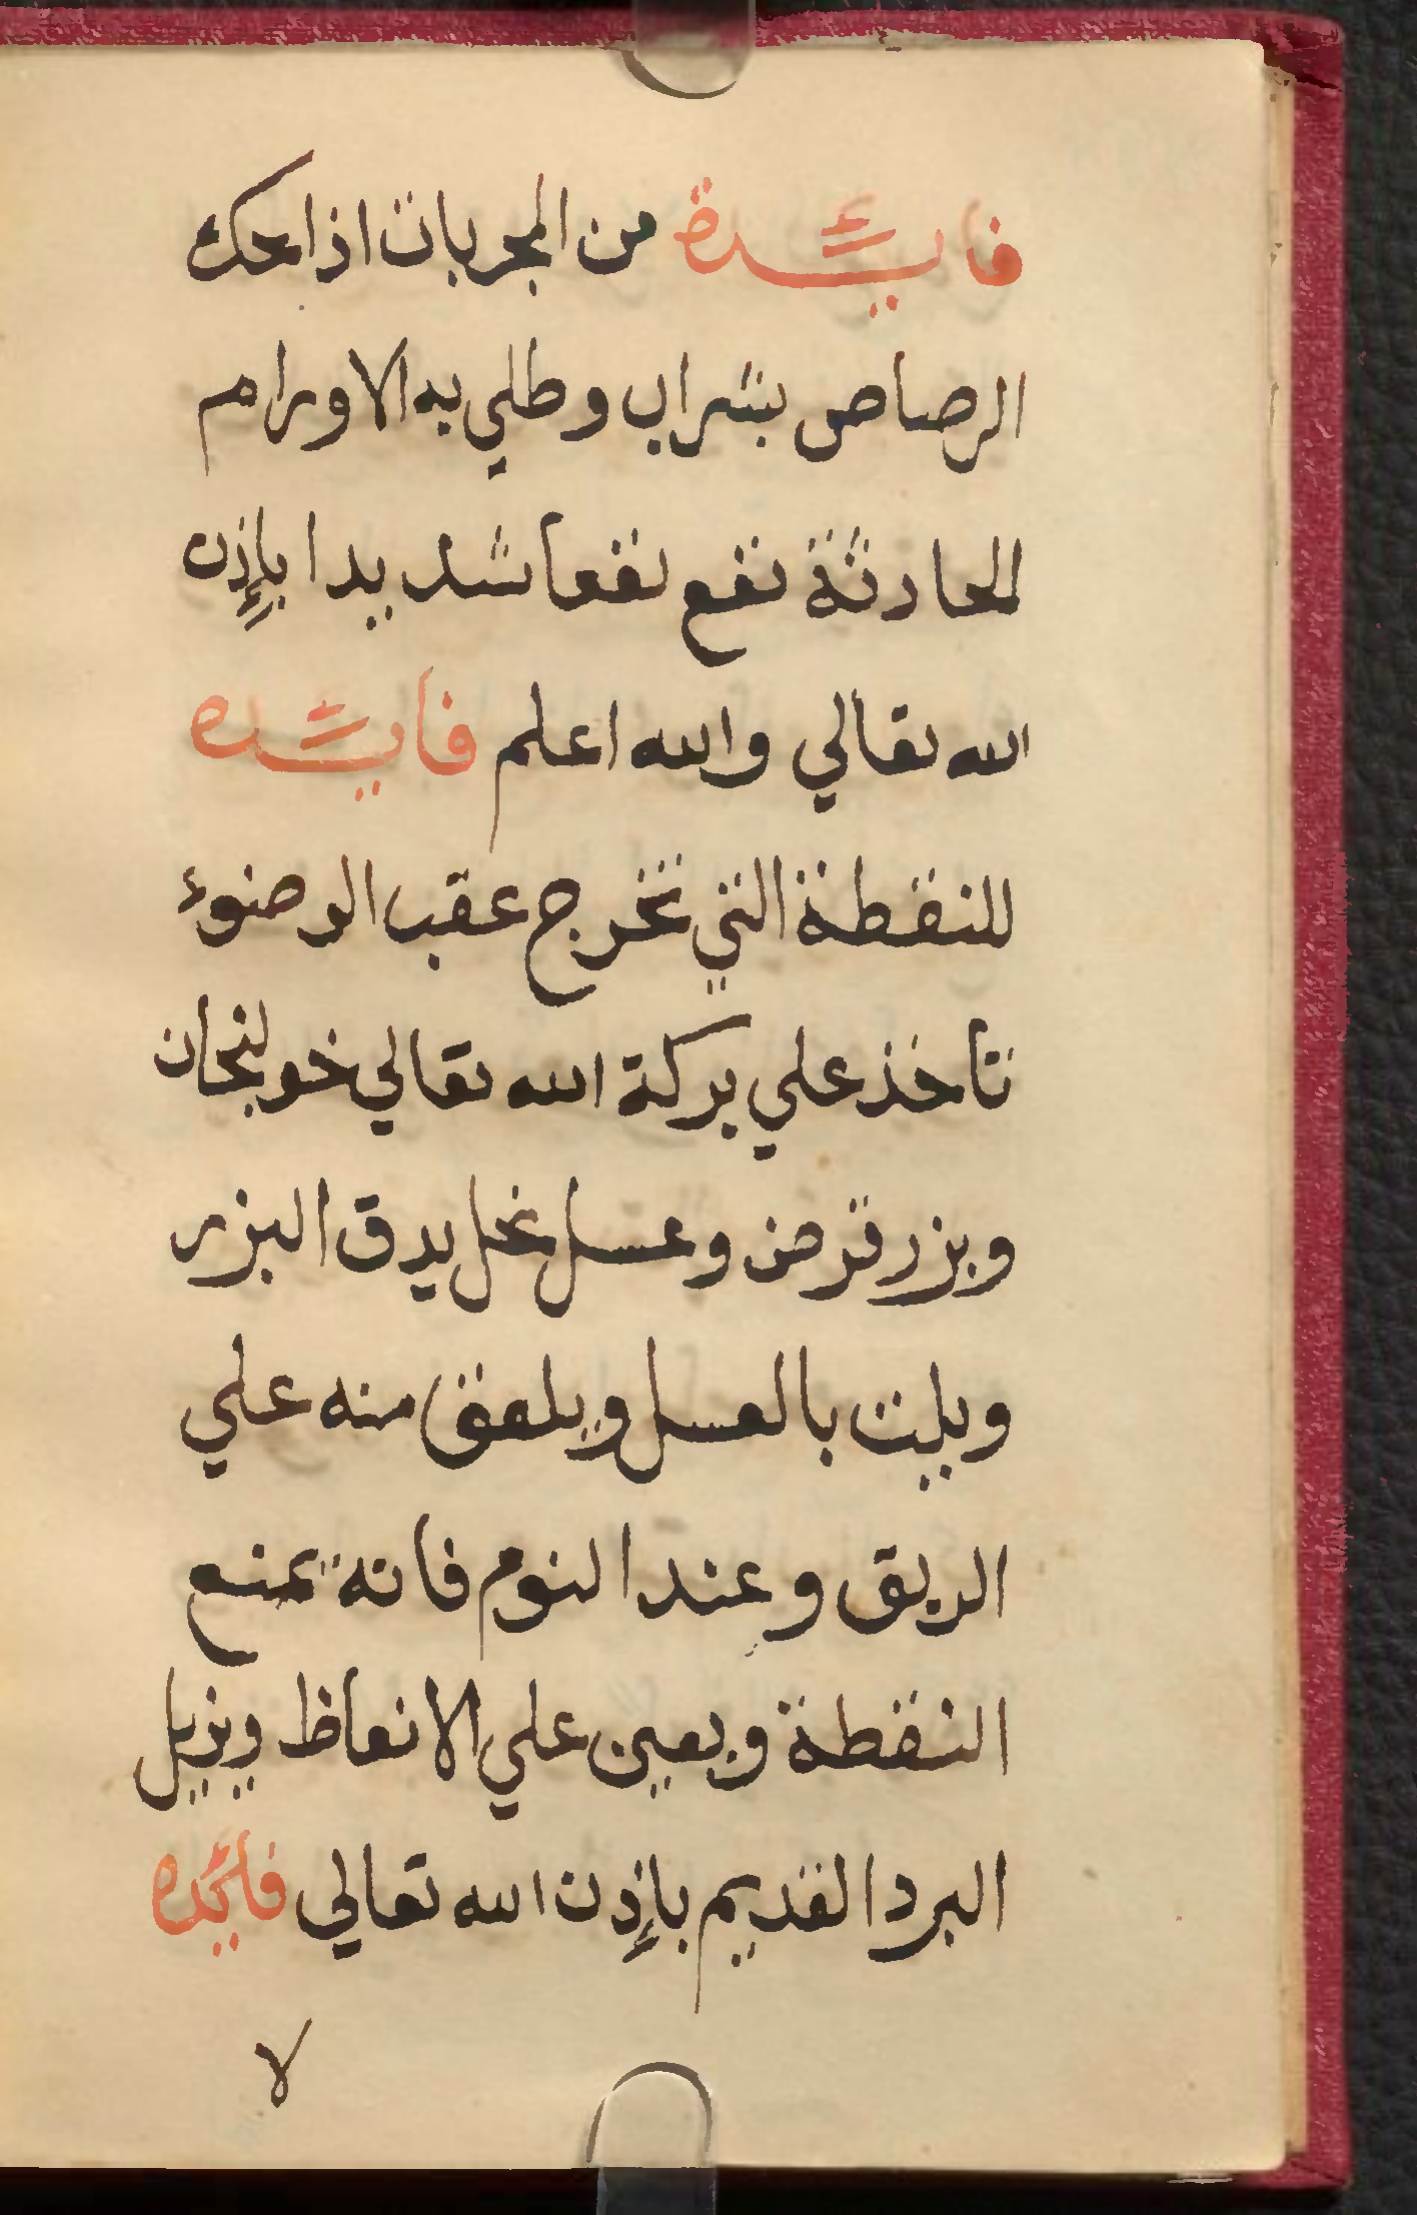 فايدة من المجربات اذا حك
الرصاص بشراب وطلي به الاورام
الحادثة نفع نفعا شديدا بإذن
الله تعالي والله اعلم فايده
للنقطة التي تخرج عقب الوضوء
تاخذ علي بركة الله تعالي خولنجان
وبزر قرض وعسل نحل يدق البزر
ويلت بالعسل ويلعق منه علي
الريق وعند النوم فانه يمنع
النقطة ويعين علي الانعاظ ويزيل
البرد القديم بإذن الله تعالي فايده
لا